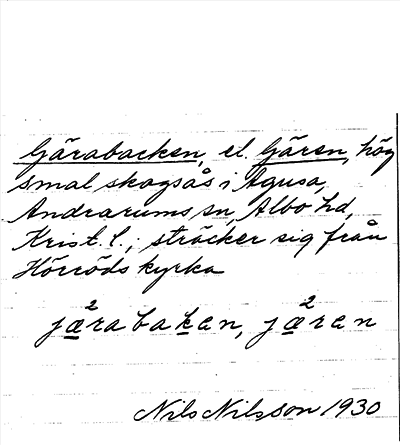 Gärabacken, el. Gären, hög
smal skogsås i Agusa,
Andrarums sn, Albo hd,
Krist. l.; sträcker sig från
Hörröds kyrka
jæ²rabaken, jæ²ren
Nils Nilsson 1930